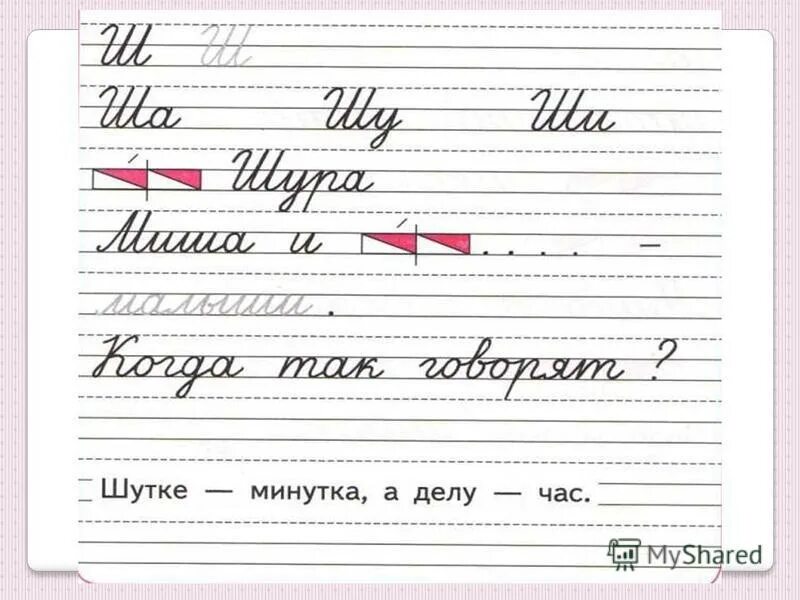 Ш Ш
Ша Шу Ши
Шура
Миша и . . . . –
малыши .
Когда так говорят ?
Шутке — минутка, а делу — час.
MyShared